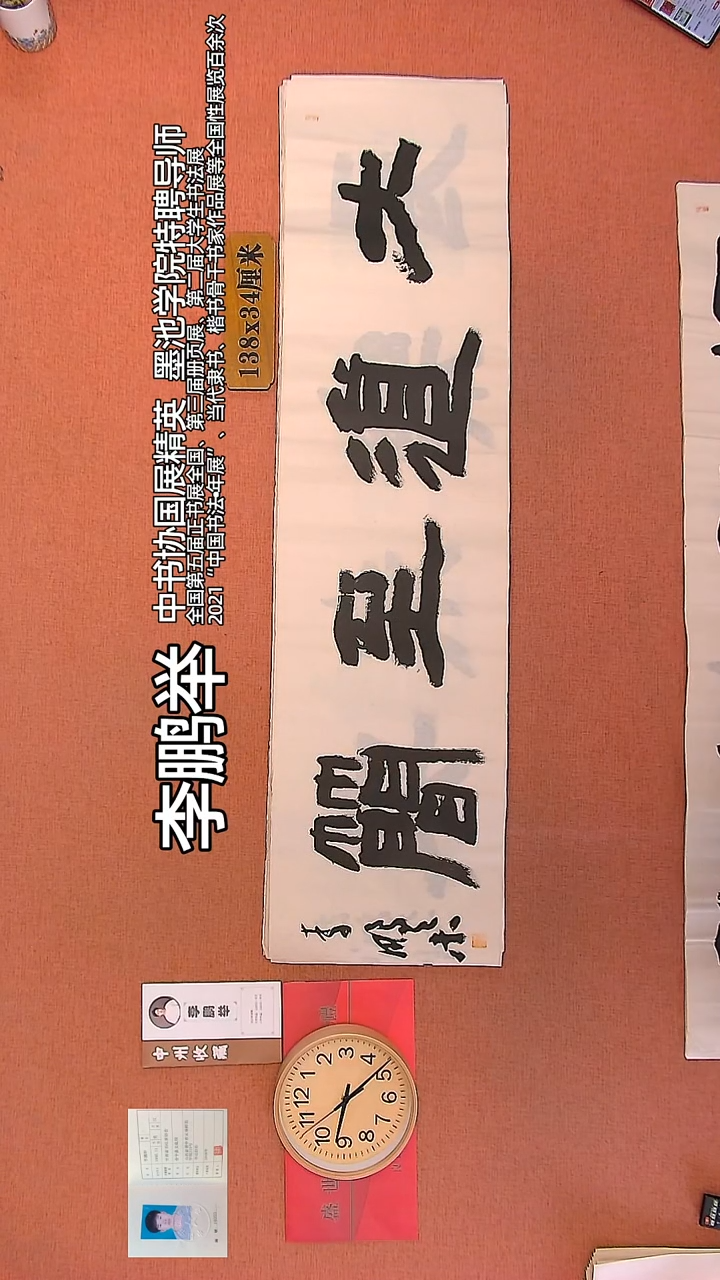 李鹏举
中书协国展精英 墨池学院特聘导师
全国第五届正书展全国、第三届册页展、第二届大学生书法展
2021“中国书法·年展”、当代隶书、楷书骨干书家作品展等全国性展览百余次
138x34厘米
大道至簡
李鹏举
中州收藏
盛世
12
1
2
3
4
5
6
7
8
9
10
11